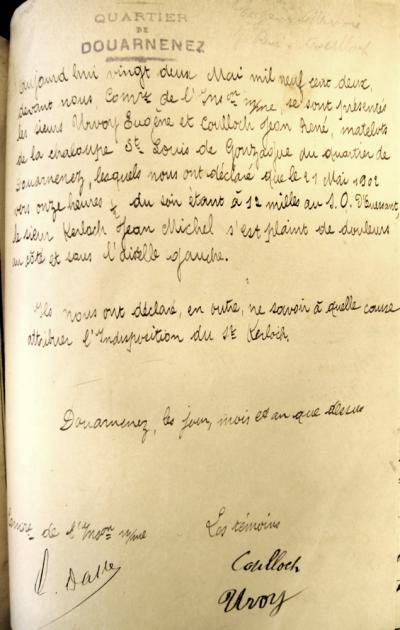 QUARTIER
DE
DOUARNENEZ
Aujourd'hui vingt deux Mai mil neuf cent deux,
devant nous, Comre de l'Inson mme, se sont présentés
les sieurs Urvoy Eugène et Coulloch Jean René, matelots
de la chaloupe St Louis de Gonzague du quartier de
Douarnenez, lesquels nous ont déclaré que le 21 Mai 1902
vers onze heures ½ du soir étant à 12 milles au S.O. D'Ouessant,
le sieur Kerloch Jean Michel s'est plaint de douleurs
au côté et sous l'aiselle gauche.
Ils nous ont déclaré, en outre, ne savoir à quelle cause
attribuer l'Indisposition du Sr Kerloch.
Douarnenez, les jour, mois et an que dessus
Comre de l'Inson mme
Les témoins
Coulloch
Urvoy